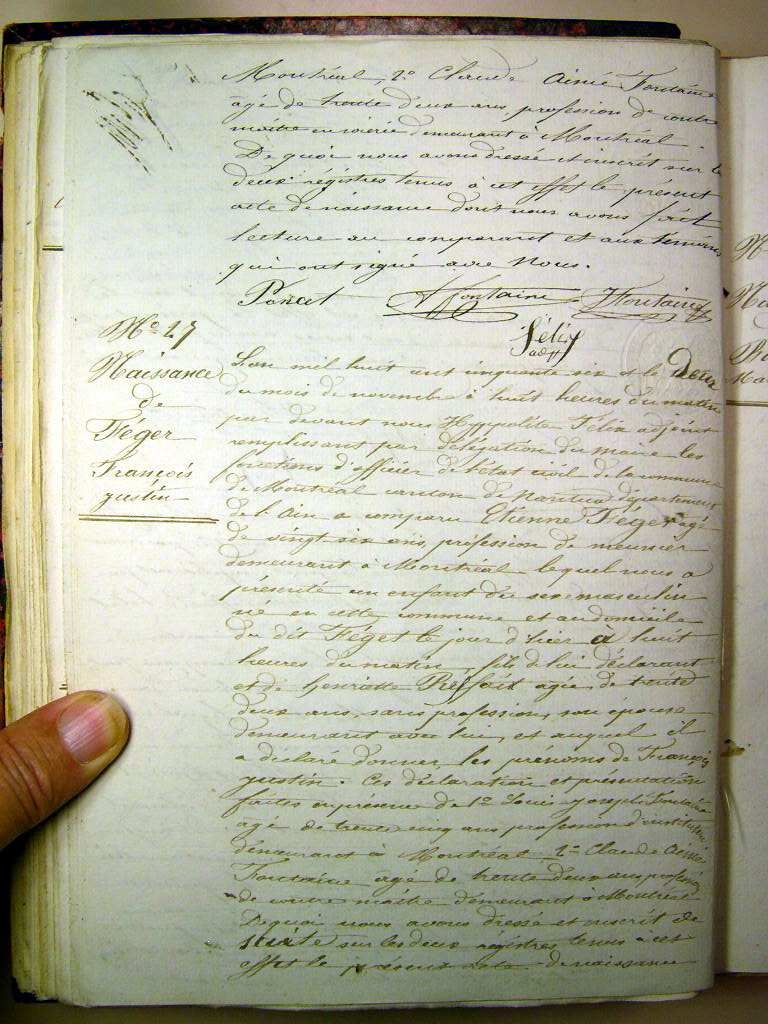 Montréal, 2° Claude Aimé Fontaine
âgé de trente deux ans profession de contre
maître en soierie demeurant à Montréal.
De quoi nous avons dressé et inscrit sur le
deux régistres tenus à cet effet le présent
acte de naissance dont nous avons fait
lecture au comparant et aux témoins
qui ont signé avec Nous.
Poncet Fontaine Fontaine
Félix
adjt
No 27
Naissance
de
Féger
François
justin
L'an mil huit cent cinquante six et le deux
du mois de novembre à huit heures du matin
par devant nous Hyppolite Félix adjoint
remplissant par délégation du maire les
fonctions d'officier de l'état civil de la commune
de Montréal canton de Nantua département
de l'Ain a comparu Etienne Féger âgé
de vingt six ans, profession de meunier
demeurant à Montréal lequel nous a
présenté un enfant du sexe masculin
né en cette commune et au domicile
du dit Féget le jour d'hier à huit
heures du matin, fils de lui déclarant
et de henriette Refait agée de trente
deux ans, sans profession, son épouse
demeurant avec lui, et auquel il
a déclaré donner les prénoms de François
justin. Ces déclaration et présentation
faites en présence de 1° Louis joseph Fontaine
âgé de trente cinq ans profession d'instituteur
demeurant à Montréal, 2° Claude Aimé
Fontaine agé de trente deux ans profession
de contre maître demeurant à Montréal
De quoi nous avons dressé et inscrit de
suite sur les deux régistres tenus à cet
effet le présent acte de naissance